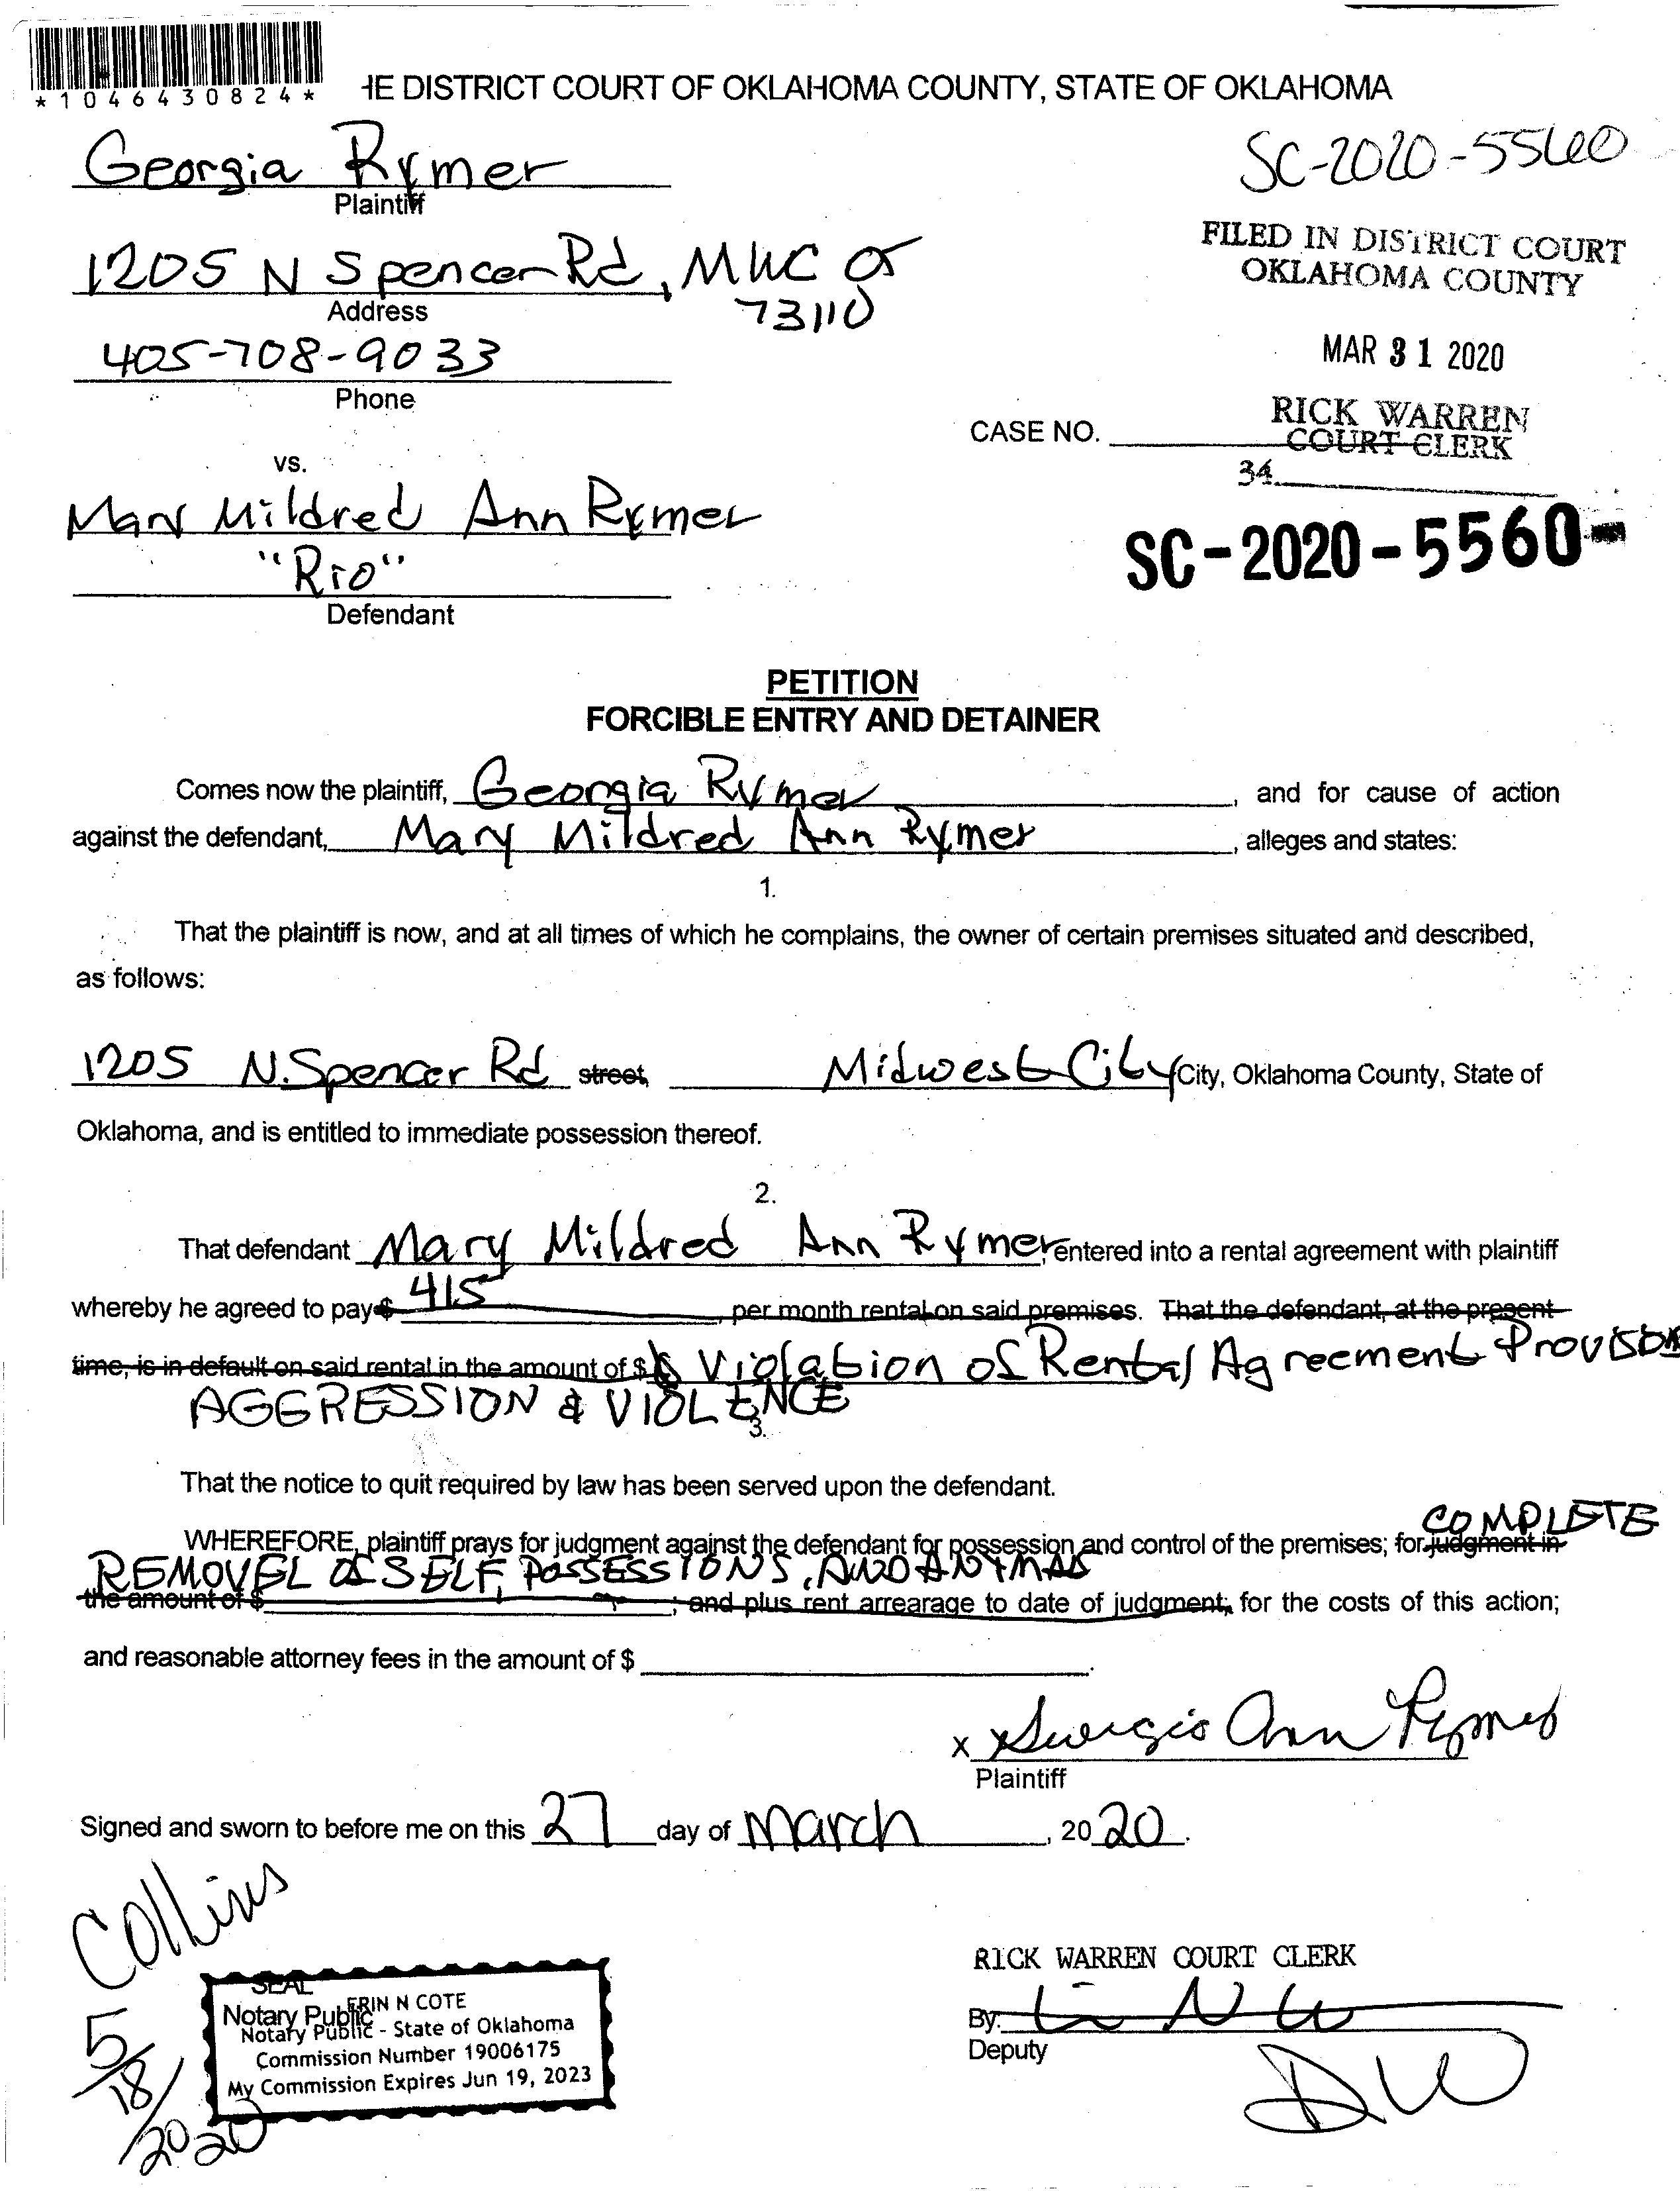 *1046430824*
HE DISTRICT COURT OF OKLAHOMA COUNTY, STATE OF OKLAHOMA
Georgia Rymer
Plaintiff
SC-2020-5560
1205 N Spencer Rd, MWC OK
73110
Address
FILED IN DISTRICT COURT
OKLAHOMA COUNTY
405-708-9033
Phone
MAR 31 2020
RICK WARREN
COURT CLERK
CASE NO.
34
vs.
Mary Mildred Ann Rymer
"Rio"
Defendant
SC-2020-5560-
PETITION
FORCIBLE ENTRY AND DETAINER
Comes now the plaintiff, Georgia Rymer, and for cause of action
against the defendant, Mary Mildred Ann Rymer, alleges and states:
1.
That the plaintiff is now, and at all times of which he complains, the owner of certain premises situated and described,
as follows:
1205 N. Spencer Rd street, Midwest City City, Oklahoma County, State of
Oklahoma, and is entitled to immediate possession thereof.
2.
That defendant Mary Mildred Ann Rymer, entered into a rental agreement with plaintiff
whereby he agreed to pay $ 415, per month rental on said premises. That the defendant, at the present
time, is in default on said rental in the amount of $ Violation of Rental Agreement Provison
AGGRESSION & VIOLENCE
3.
That the notice to quit required by law has been served upon the defendant.
COMPLETE
WHEREFORE, plaintiff prays for judgment against the defendant for possession and control of the premises; for judgment in
REMOVEL OF SELF, POSSESSIONS, AND ANIMALS
the amount of $ ; and plus rent arrearage to date of judgment; for the costs of this action;
and reasonable attorney fees in the amount of $ .
x Georgia Ann Rymer
Plaintiff
Signed and sworn to before me on this 27 day of March, 2020.
Collins
5/18/2020
SEAL
Notary Public
ERIN N COTE
Notary Public - State of Oklahoma
Commission Number 19006175
My Commission Expires Jun 19, 2023
RICK WARREN COURT CLERK
By:
Deputy
DW